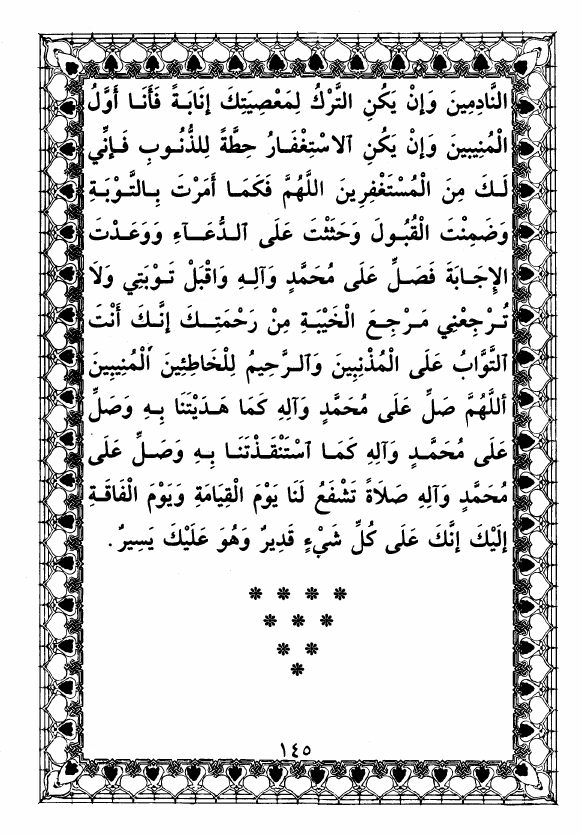 النَّادِمِينَ وَإِنْ يَكُنِ التَّرْكُ لِمَعْصِيَتِكَ إِنَابَةً فَأَنَا أَوَّلُ
الْمُنِيبِينَ وَإِنْ يَكُنِ الاسْتِغْفَارُ حِطَّةً لِلذُّنُوبِ فَإِنِّي
لَكَ مِنَ الْمُسْتَغْفِرِينَ اللَّهُمَّ فَكَمَا أَمَرْتَ بِالتَّوْبَةِ
وَضَمِنْتَ الْقُبُولَ وَحَثَثْتَ عَلَى الدُّعَآءِ وَوَعَدْتَ
الإِجَابَةَ فَصَلِّ عَلَى مُحَمَّدٍ وَآلِهِ وَاقْبَلْ تَوْبَتِي وَلَا
تُرْجِعْنِي مَرْجِعَ الْخَيْبَةِ مِنْ رَحْمَتِكَ إِنَّكَ أَنْتَ
التَّوَّابُ عَلَى الْمُذْنِبِينَ وَالرَّحِيمُ لِلْخَاطِئِينَ الْمُنِيبِينَ
أللَّهُمَّ صَلِّ عَلَى مُحَمَّدٍ وَآلِهِ كَمَا هَدَيْتَنَا بِهِ وَصَلِّ
عَلَى مُحَمَّدٍ وَآلِهِ كَمَا اسْتَنْقَذْتَنَا بِهِ وَصَلِّ عَلَى
مُحَمَّدٍ وَآلِهِ صَلاَةً تَشْفَعُ لَنَا يَوْمَ الْقِيَامَةِ وَيَوْمَ الْفَاقَةِ
إِلَيْكَ إِنَّكَ عَلَى كُلِّ شَيْءٍ قَدِيرٌ وَهُوَ عَلَيْكَ يَسِيرٌ.
١٤٥